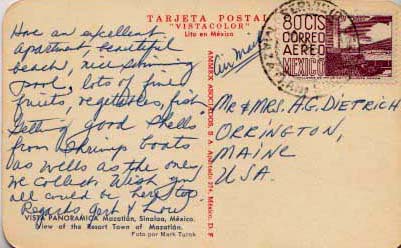 TARJETA POSTAL
"VISTACOLOR"
Lito en México
Have an excellent
apartment, beautiful
beach, nice swimming
pool, lots of fine
fruits, vegetables, fish
getting good shells
from shrimp boats
as wells as the ones
we collect. Wish you
all could be here too.
Regards
VISTA PANORAMICA Mazatlán, Sinaloa, México.
View of the Resort Town of Mazatlán.
Foto por Mark Turok
AMMEX ASOCIADOS, S. A.
México, D. F.
Air Mail
80 CTS
CORREO
AEREO
MEXICO
Mr & MRS. A.G. DIETRICH
ORRINGTON,
MAINE
USA.